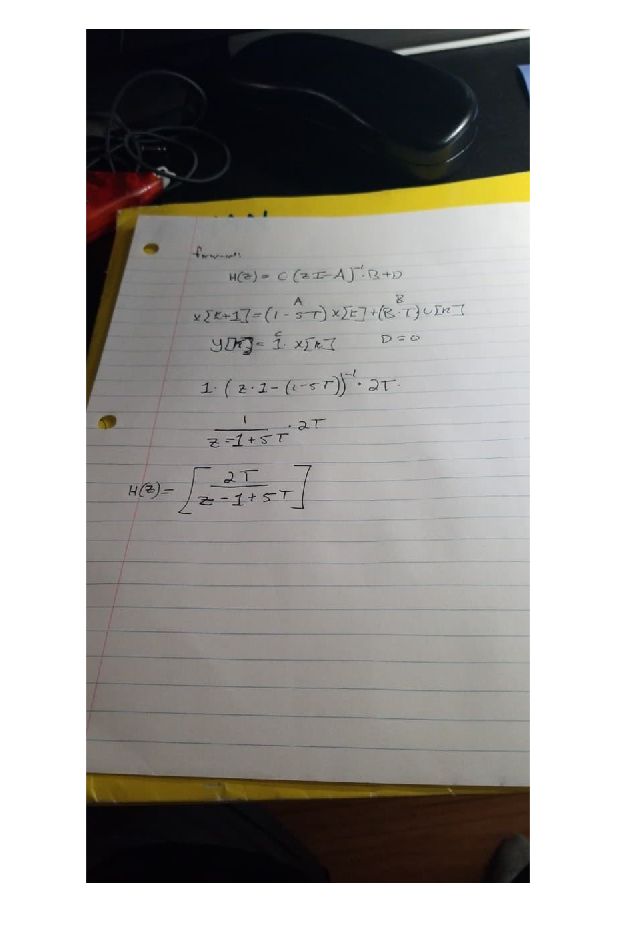 H(z) = C (zI-A)⁻¹·B+D
A B
x[k+1] = (1-5T) x[k] + (B·T) u[k]
C
y[k] = 1· x[k] D=0
1· (z·1-(1-5T))⁻¹ · 2T.
1
z-1+5T · 2T
H(z) = [ 2T
z-1+5T ]